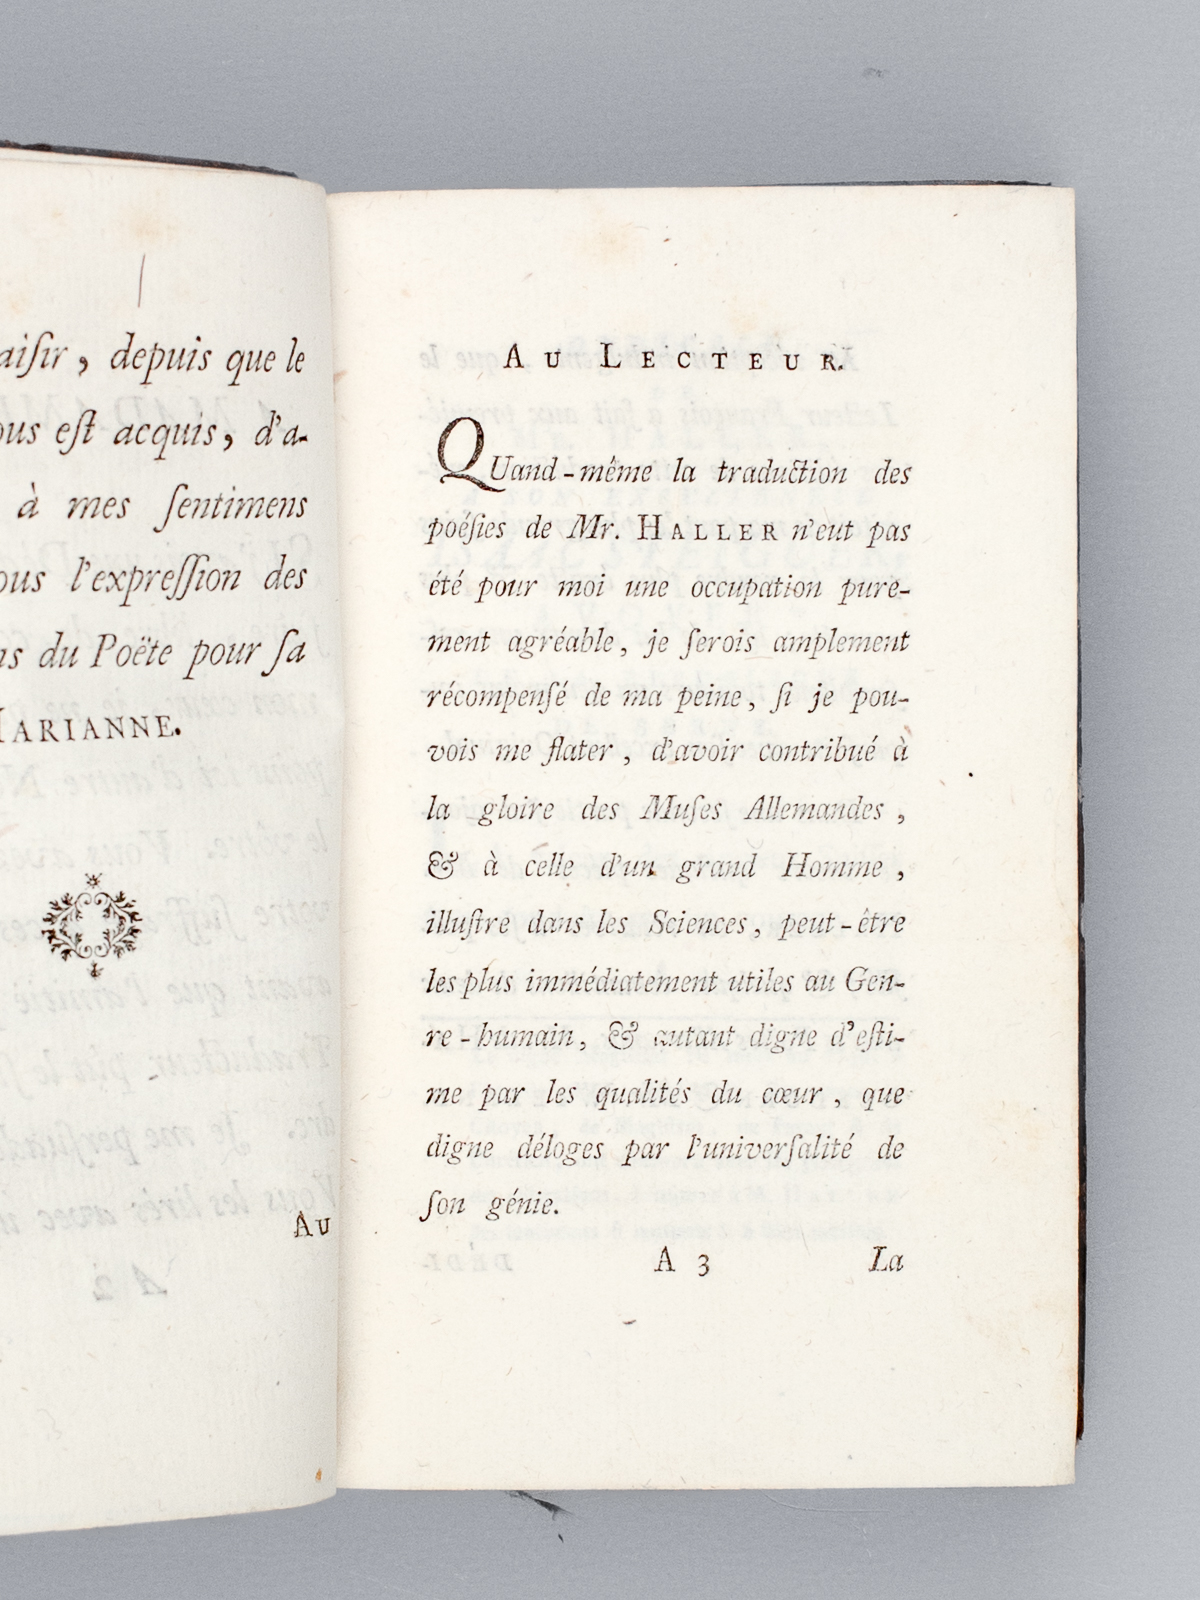 aiſir, depuis que le
ous eſt acquis, d'a-
à mes ſentimens
ous l'expreſſion des
ns du Poëte pour ſa
MARIANNE.
Au
AU LECTEUR.
QUand-même la traduction des
poéſies de Mr. HALLER n'eut pas
été pour moi une occupation pure-
ment agréable, je ſerois amplement
récompenſé de ma peine, ſi je pou-
vois me flater, d'avoir contribué à
la gloire des Muſes Allemandes,
& à celle d'un grand Homme,
illuſtre dans les Sciences, peut-être
les plus immédiatement utiles au Gen-
re-humain, & autant digne d'eſti-
me par les qualités du cœur, que
digne déloges par l'univerſalité de
ſon génie.
A 3 La